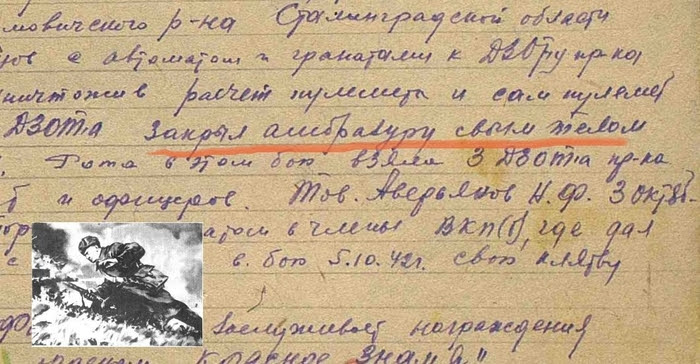 мовичского р-на Сталинградской области
с автоматом и гранатами к ДЗОТу пр-ка
уничтожив расчет пулемета и сам пулемет
ДЗОТа закрыл амбразуру своим телом
. Рота в этом бою взяла 3 ДЗОТа пр-ка
и офицеров. Тов. Аверьянов Н.Ф. 3 октяб-
в члены ВКП(б), где дал
с в бою 5.10.42г. свою клятву
заслуживает награждения
Красное Знамя"